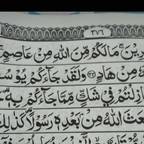 ٣٧٦
رِيْنَ ۚ مَا لَكُمْ مِّنَ اللّٰهِ مِنْ عَاصِمٍ ۚ
مِنْ هَادٍ ۝ وَلَقَدْ جَآءَكُمْ يُوْسُ
زِلْتُمْ فِيْ شَكٍّ مِّمَّا جَآءَكُمْ بِهٖ ؕ
عَثَ اللّٰهُ مِنْۢ بَعْدِهٖ رَسُوْلًا ؕ كَذٰلِكَ